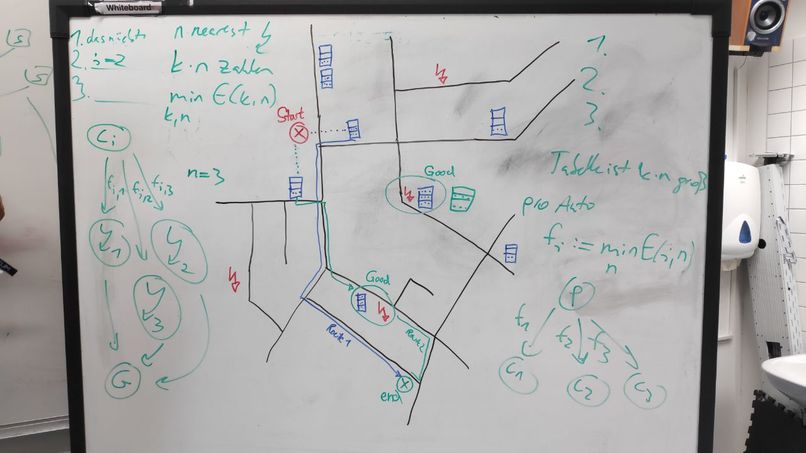 Whiteboard
1. das nichts
2. i=2
3.
n nearest
k·n zahlen
min E(k,n)
k,n
Start
n=3
Ci
fi,1
fi,2
fi,3
1
2
3
G
Good
Good
Route 1
Route 2
end
1.
2.
3.
Tabelle ist k·n groß
pro Auto
fi := min E(i,n)
n
P
f1
f2
f3
C1
C2
C3